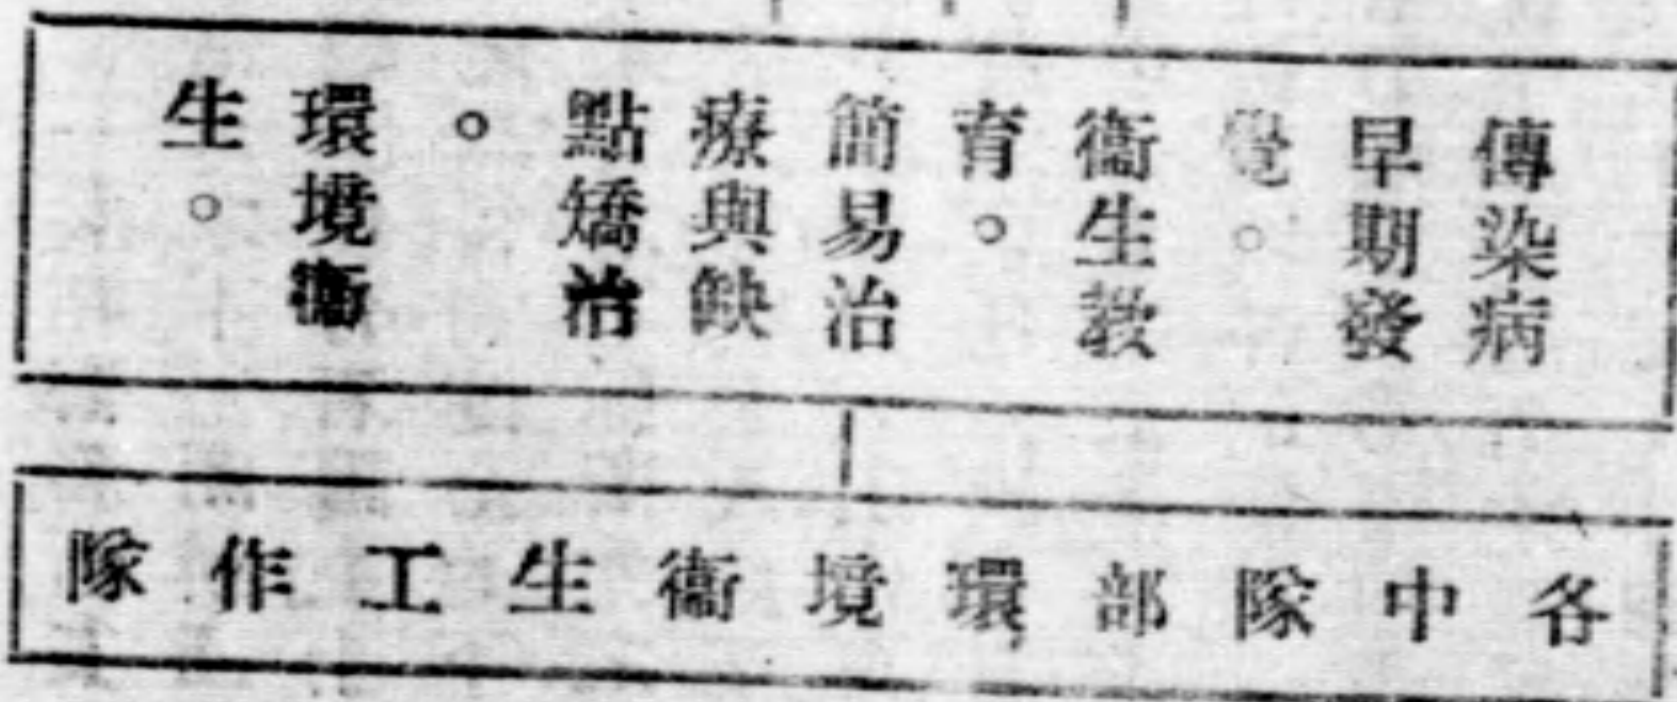 傳染病
早期發
覺。
衞生教
育。
簡易治
療與缺
點矯治
。
環境衞
生。
各中隊部環境衞生工作隊